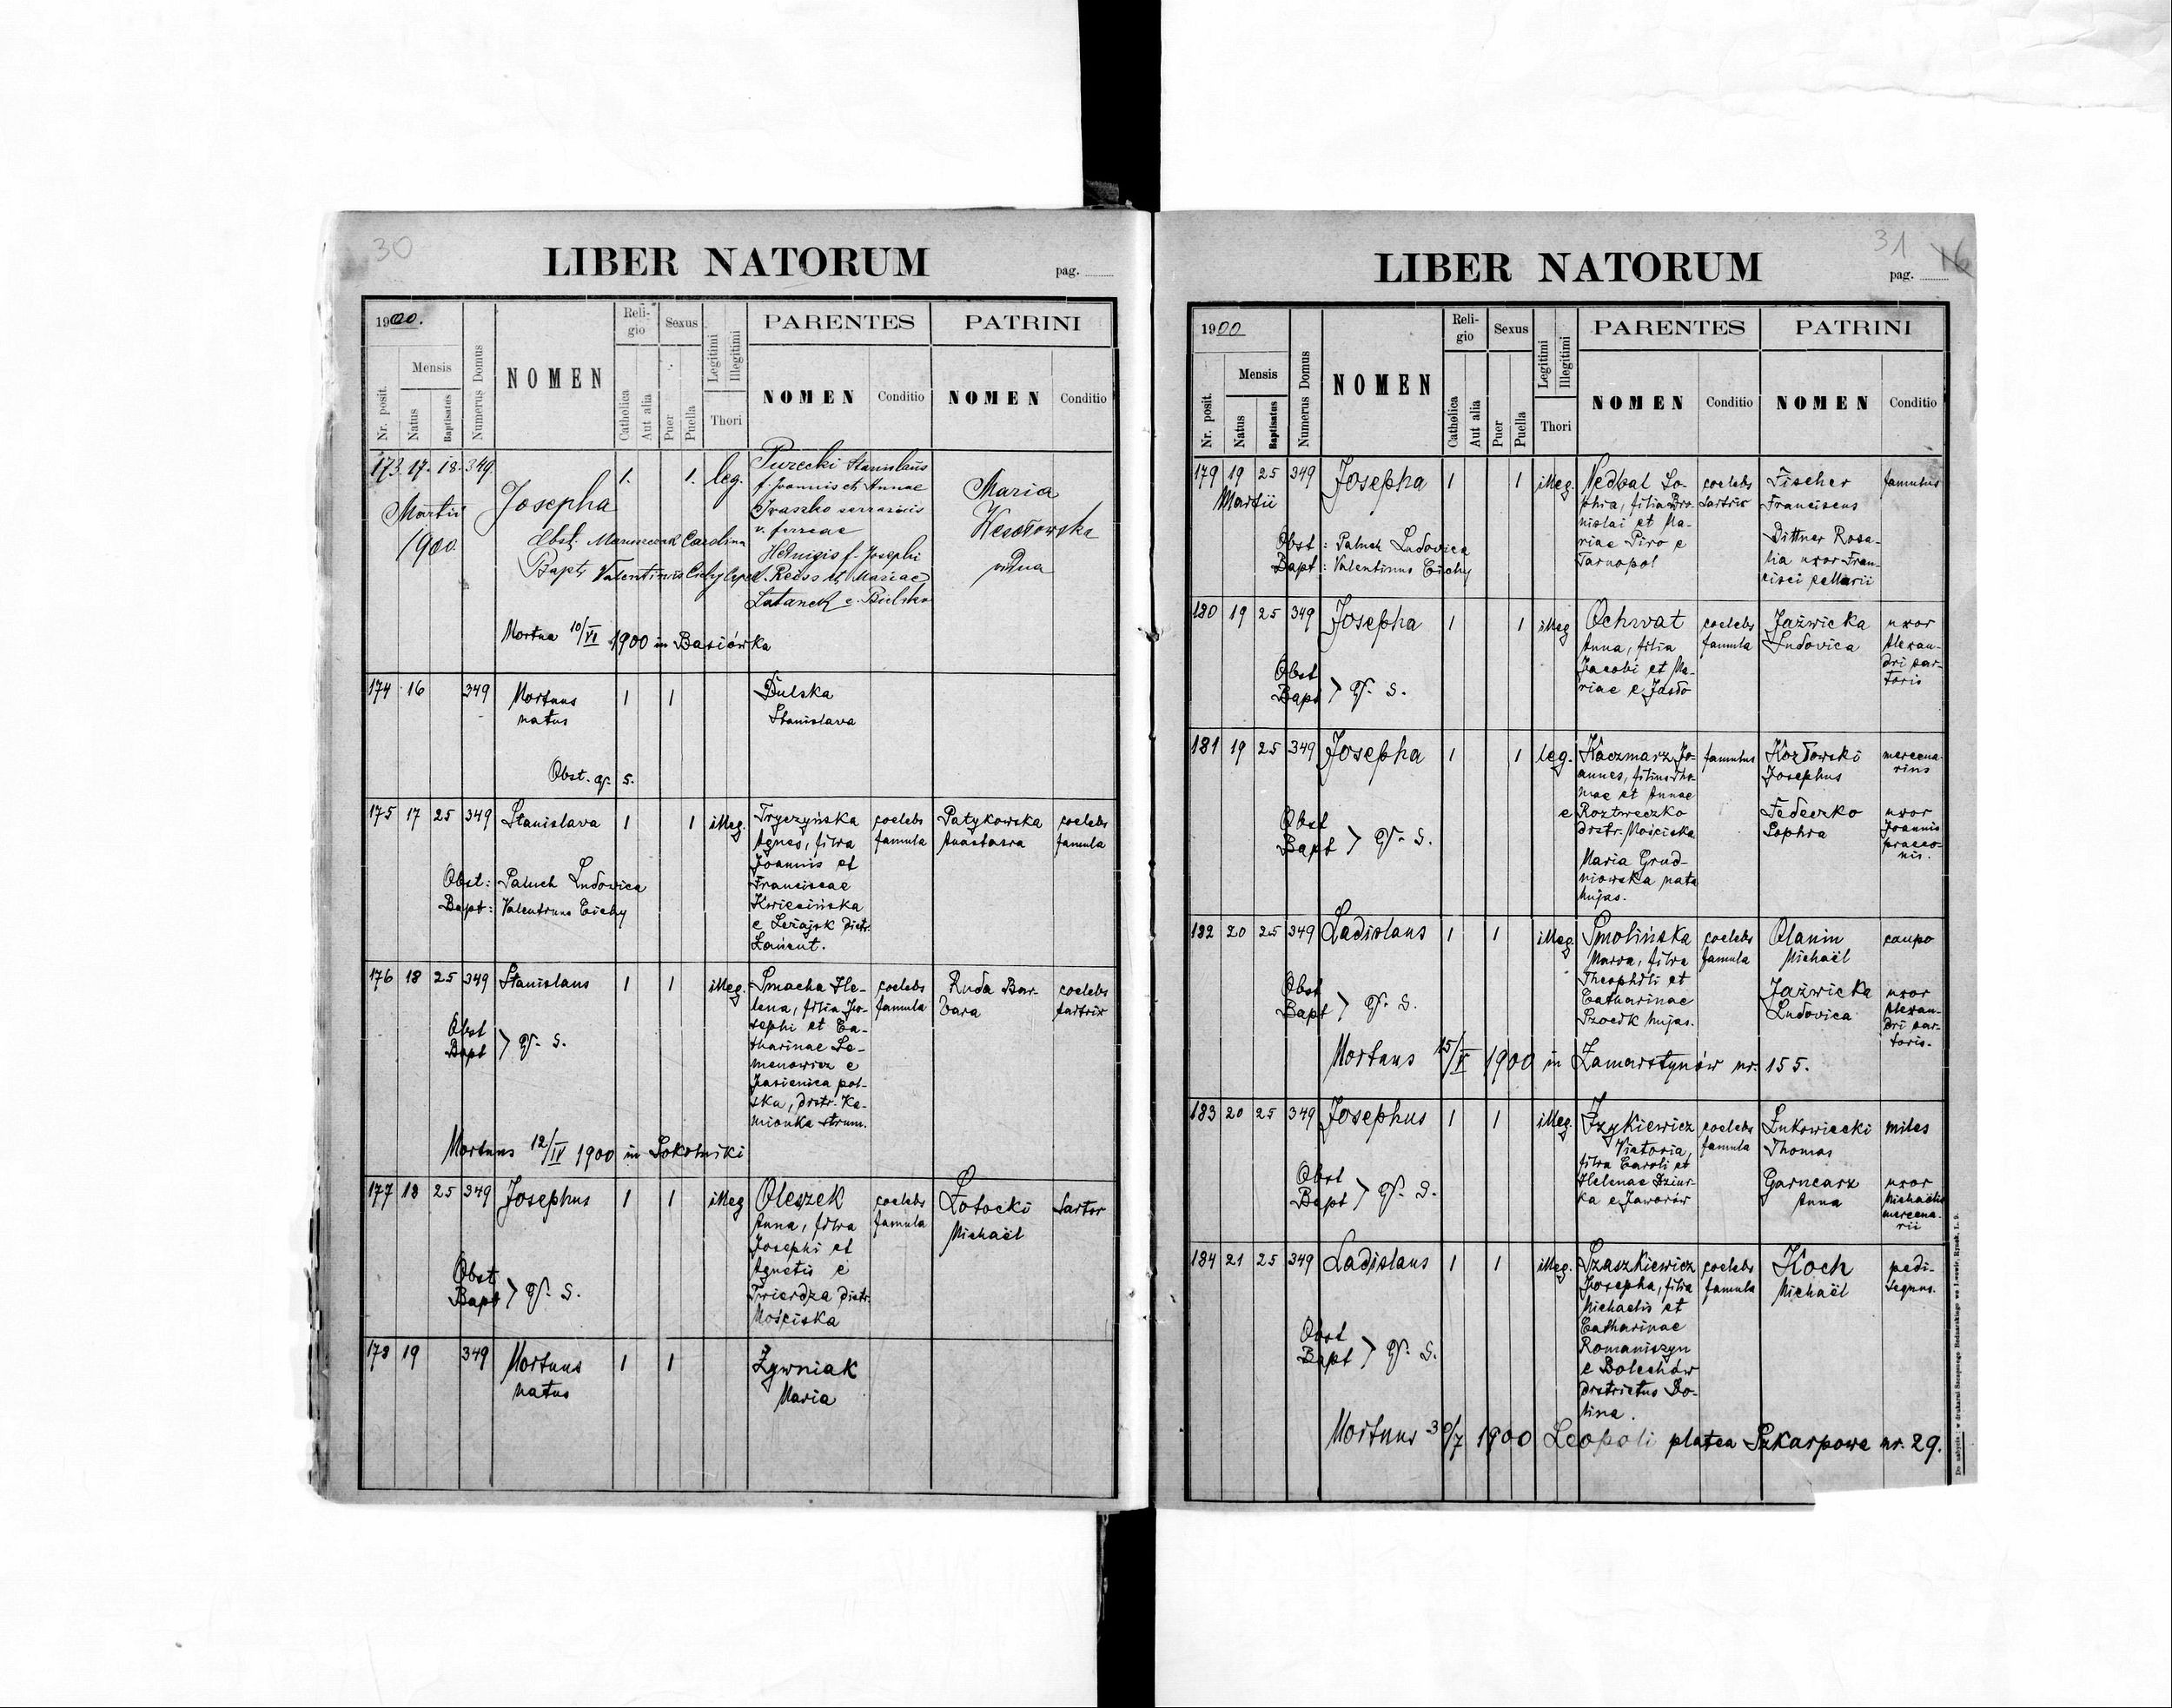 30
LIBER NATORUM
pag.
1900.
Religio
Sexus
Legitimi
Illegitimi
PARENTES
PATRINI
Mensis
Nr. posit.
Natus
Baptisatus
Numerus Domus
NOMEN
Catholica
Aut alia
Puer
Puella
Thori
NOMEN
Conditio
NOMEN
Conditio
173. 17. 18. 349.
Martii
1900.
Josepha
1. 1. leg.
Purecki Stanislaus
f. Joannis et Annae
Iwaszko
v. ferreae
Hedvigis f. Josephi
Reiss et Mariae
Latanek e Bielsko
Maria
Wesołowska
vidua
Obst. Carolina
Bapt. Valentinus Cichy
Mortua 10/VI 1900 in Basiówka
174 16 349
Mortuus
natus
1 1
Dulska
Stanislava
Obst. q. s.
175 17 25 349 Stanislava 1 1 illeg.
Tryczyńska
Agnes, filia
Joannis et
Franciscae
Kwiecińska
e Leżajsk distr.
Łańcut.
coelebs
famula
Patykowska
Anastasia
coelebs
famula
Obst: Paluch Ludovica
Bapt: Valentinus Cichy
176 18 25 349 Stanislaus 1 1 illeg.
Smacha He-
lena, filia Jo-
sephi et Ca-
tharinae Se-
menowicz e
Jasienica pol-
ska, distr. Ka-
mionka strum.
coelebs
famula
Ruda Bar-
bara
coelebs
sartrix
Obst
Bapt > q. s.
Mortuus 12/IV 1900 in Sokolniki
177 18 25 349 Josephus 1 1 illeg
Oleszek
Anna, filia
Josephi et
Agnetis e
Twierdza distr.
Mościska
coelebs
famula
Łotocki
Michaël
Sartor
Obst
Bapt > q. s.
178 19 349
Mortuus
natus
1 1
Żywniak
Maria
31 16
LIBER NATORUM
pag.
1900
Religio
Sexus
Legitimi
Illegitimi
PARENTES
PATRINI
Mensis
Nr. posit.
Natus
Baptisatus
Numerus Domus
NOMEN
Catholica
Aut alia
Puer
Puella
Thori
NOMEN
Conditio
NOMEN
Conditio
179 19 25 349 Josepha 1 1 illeg.
Martii
Nedbal So-
phia, filia Bro-
nislai et Ma-
riae Piro e
Tarnopol
coelebs
sartrix
Fischer
Franciscus
famulus
Dittner Rosa-
lia uxor Fran-
cisci cellarii
Obst: Paluch Ludovica
Bapt: Valentinus Cichy
180 19 25 349 Josepha 1 1 illeg
Ochwat
Anna, filia
Jacobi et Ma-
riae e Jasło
coelebs
famula
Jaźwicka
Ludovica
uxor
Alexan-
dri sar-
toris
Obst
Bapt > q. s.
181 19 25 349 Josepha 1 1 leg.
Kaczmarz Jo-
annes, filius Tho-
mae et Annae
Roztweczko e
distr. Mościska
Maria Grud-
niowska nata
hujas.
famulus
Kozłowski
Josephus
mercena-
rius
Fedeczko
Sophia
uxor
Joannis
praeco-
nis.
Obst
Bapt > q. s.
182 20 25 349 Ladislaus 1 1 illeg.
Smolińska
Maria, filia
Theophili et
Catharinae
Szocik hujas.
coelebs
famula
Olanin
Michaël
caupo
Jaźwicka
Ludovica
uxor
Alexan-
dri sar-
toris.
Obst
Bapt > q. s.
Mortuus 15/V 1900 in Zamarstynów nr. 155.
183 20 25 349 Josephus 1 1 illeg.
Izykiewicz
Victoria,
filia Caroli et
Helenae Dziur-
ka e Jaworów
coelebs
famula
Łukowiecki
Thomas
miles
Garncarz
Anna
uxor
Michaëlis
mercena-
rii
Obst
Bapt > q. s.
184 21 25 349 Ladislaus 1 1 illeg.
Szaszkiewicz
Josepha, filia
Michaelis et
Catharinae
Romaniszyn
e Bolechów
districtus Do-
lina.
coelebs
famula
Koch
Michaël
pedi-
sequus.
Obst
Bapt > q. s.
Mortuus 30/7 1900 Leopoli platea Szkarpowa nr. 29.
Do nabycia: w drukarni Szczęsnego Bednarskiego we Lwowie, Rynek, l. 9.